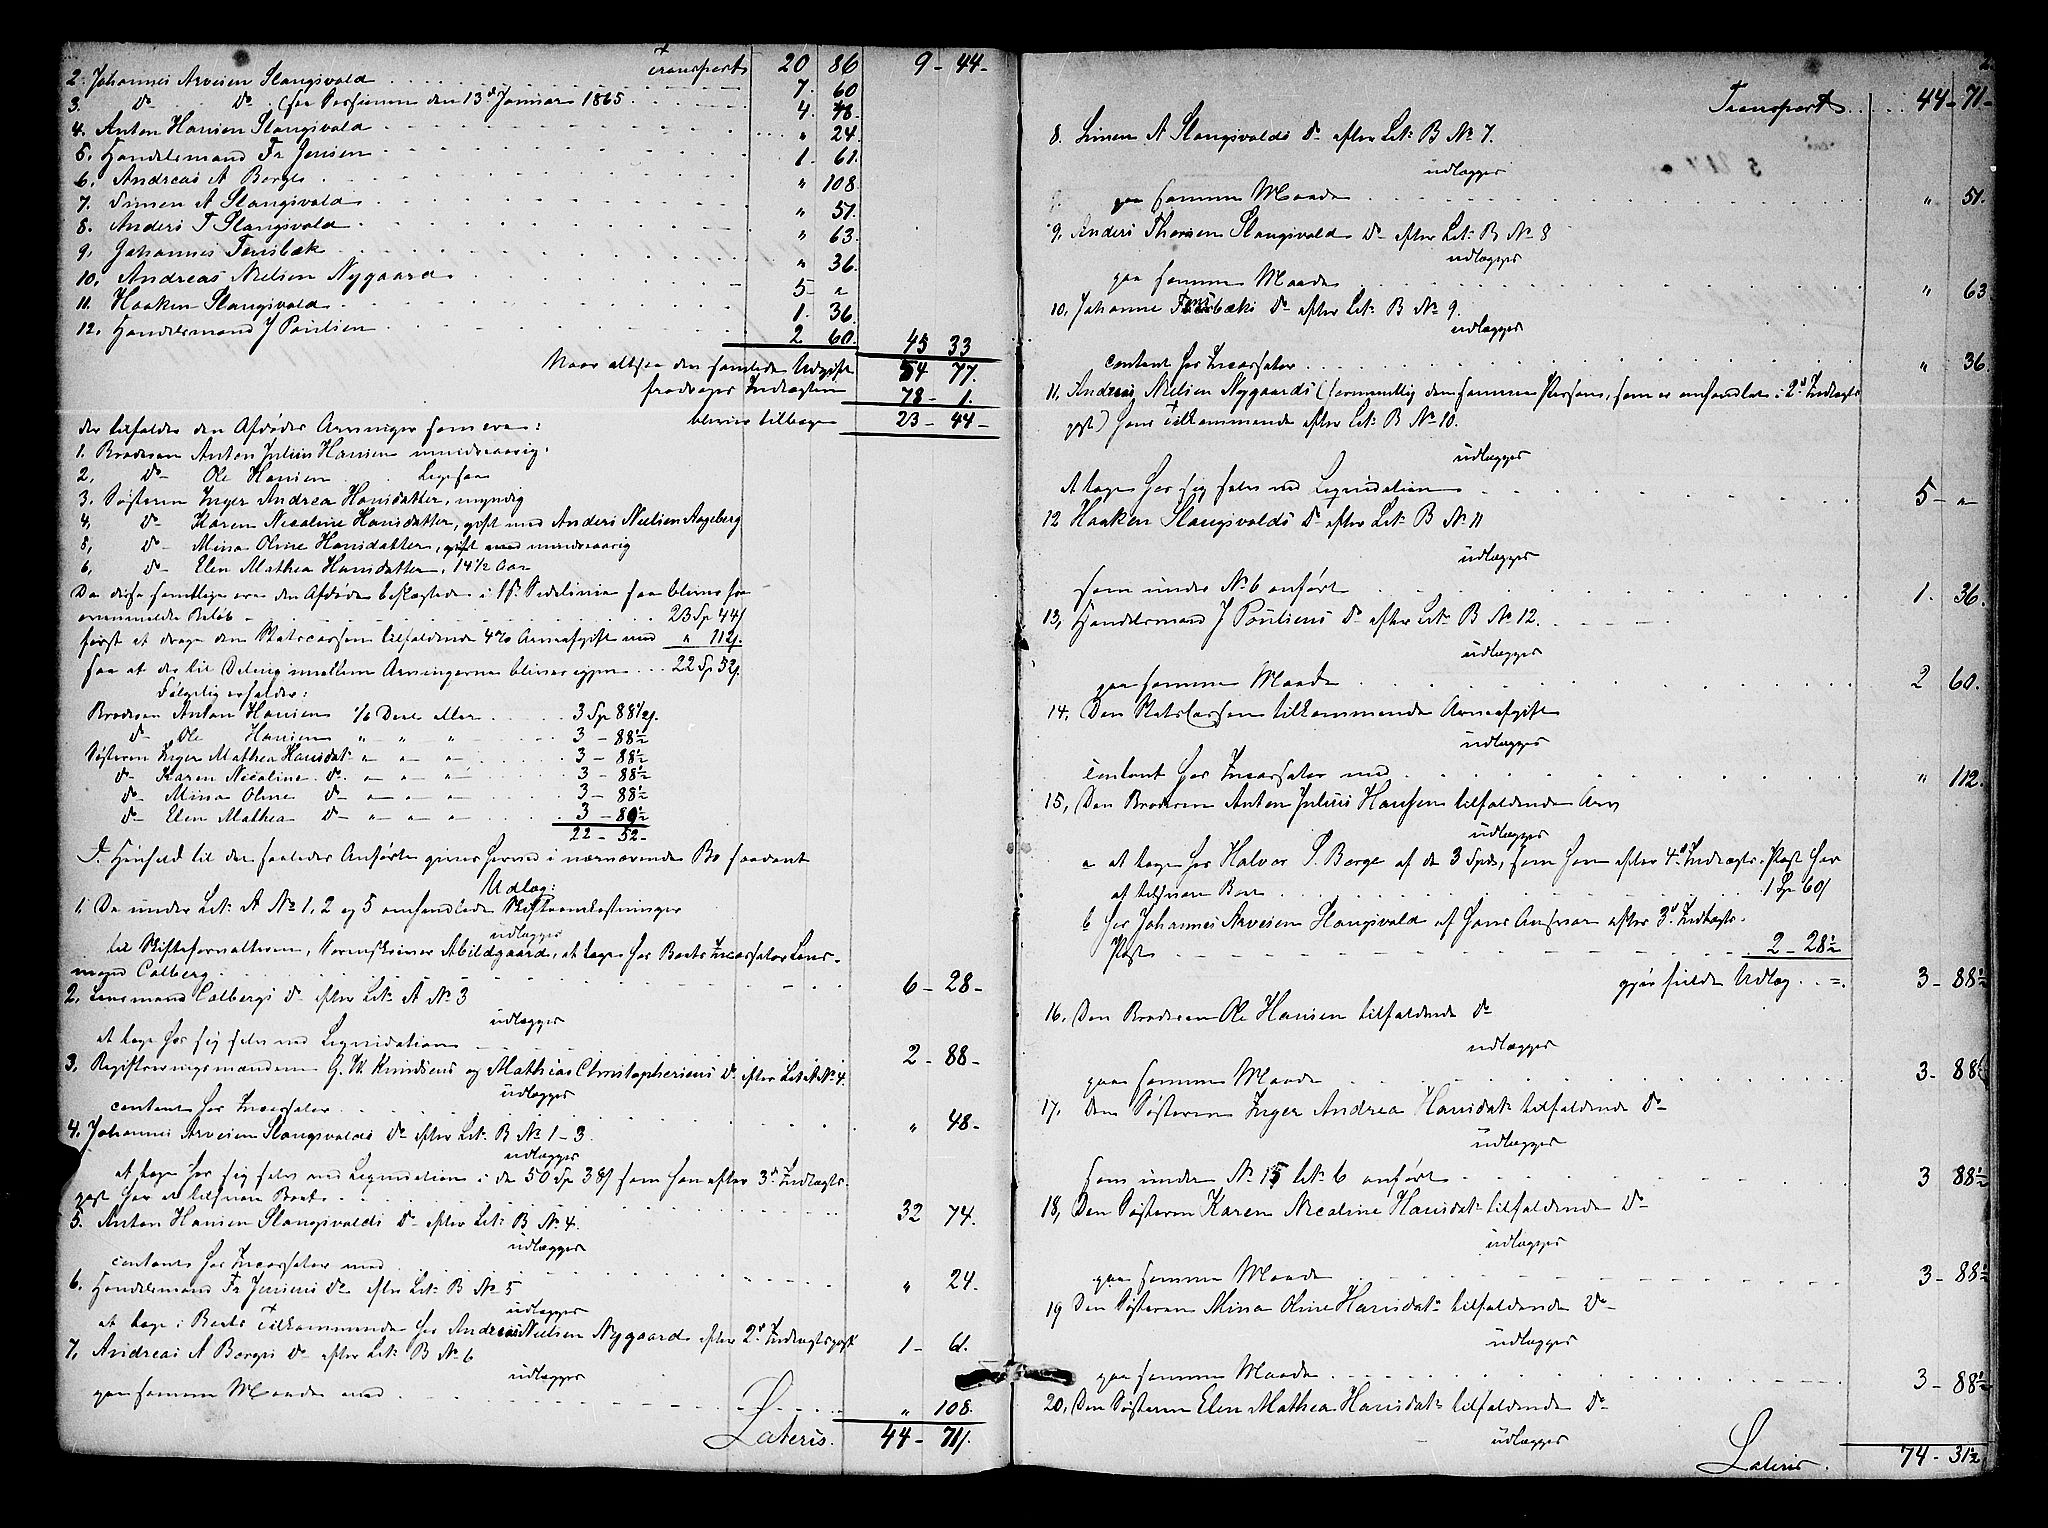 Transport 20 86 9 - 44 -
2. Johannes Arvesen Slangsvold 7. 60
3. Do Do (see Sessionen den 13de Januar 1865 4. 48.
4. Anton Hansen Slangsvold " 24.
5. Handelsmand Fr Jensen 1. 61.
6. Andreas A Borge " 108.
7. Simen A Slangsvold " 51.
8. Anders T Slangsvold " 63.
9. Johannes Tensbæk " 36.
10. Andreas Nielsen Nygaard 5 "
11. Haaken Slangsvold 1. 36.
12. Handelsmand J Poulsen 2 60. 45 33
Naar altsaa den samlede Udgift 54 77.
fradrages Indtægten 78 - 1.
bliver tilbage 23 - 44 -
der tilfalder den Afdødes Arvinger som ere:
1. Broderen Anton Julius Hansen mindreaarig.
2. Do Ole Hansen Ligesaa
3. Søsteren Inger Andrea Hansdatter, myndig
4. Do Karen Nicoline Hansdatter, gift med Anders Nielsen Aageberg
5. Do Mina Oline Hansdatter, gift med mindreaarig
6. Do Elen Mathea Hansdatter, 14 1/2 Aar
Da disse samtlige ere den Afdøde beslægtede i Sidelinie saa bliver fra
ovenmeldte Beløb 23 Sp 44 s
først at drage den Statscassen tilfaldende 4% Arveafgift med " 112 s.
saa at der til Deling imellem Arvingerne bliver igjen 22 Sp 52 s.
Følgelig erholder:
Broderen Anton Hansen 1/6 Deel eller 3 Sp 88 1/2 s.
do Ole Hansen " " " 3 - 88 1/2
Søsteren Inger Mathea Hansdat: " " " 3 - 88 1/2
do Karen Nicoline do " " " 3 - 88 1/2
do Mina Oline do " " " 3 - 88 1/2
do Elen Mathea do " " " 3 - 89 1/2
22 - 52 -
I Henhold til det saaledes Anførte gives herved i nærværende Bo saadant
Udlæg:
1. De under Lit: A No 1, 2 og 5 omhandlede Skifteomkostninger
udlægges
til Skifteforvalteren, Sorenskriver Abildgaard, at tage hos Boets Incassator Lens-
mand Colberg 6 - 28 -
2. Lensmand Colbergs Do efter Lit: A No 3
udlægges
at tage hos sig selv ved Liqvidation 2 - 88 -
3. Registreringsmændene G. W. Knudsens og Mathias Christophersens Do efter Lit A No 4.
udlægges
contant hos Incassator " 48 -
4. Johannes Arvesen Slangsvolds Do efter Lit: B No 1 - 3.
udlægges
at tage hos sig selv ved Liqvidation i de 50 Sp 38 s som han efter 3de Indtægts-
post har at tilsvare Boet 32 74.
5. Anton Hansen Slangsvolds Do efter Lit: B No 4.
udlægges
contant hos Incassator med " 24.
6. Handelsmand Fr Jensens Do efter Lit: B No 5
udlægges
at tage i Boets Tilkommende hos Andreas Nielsen Nygaard efter 2d Indtægtspost 1 - 61.
7. Andreas A Borges Do efter Lit: B No 6
udlægges
paa samme Maade med " 108.
Lateris. 44 - 71 s.
Transport 44 - 71 -
8. Simen A Slangsvolds Do efter Lit: B No 7.
udlægges
paa samme Maade " 51.
9. Anders Thorsen Slangsvold Do efter Lit: B No 8
udlægges
paa samme Maade " 63
10. Johanne Tensbæks Do efter Lit: B No 9.
udlægges
contant hos Incassator " 36.
11. Andreas Nielsen Nygaards (formentlig den samme Person, som er omhandlet i 2d Indtægts
post) hans Tilkommende efter Lit: B No 10.
udlægges
At tage hos sig selv ved Liqvidation 5 - "
12 Haaken Slangsvolds Do efter Lit: B No 11
udlægges
som under No 6 anført 1. 36.
13, Handelsmand J Poulsens Do efter Lit: B No 12.
udlægges
paa samme Maade 2 60.
14. Den Statscassen tilkommende Arveafgift
udlægges
contant hos Incassator med " 112.
15, Den Broderen Anton Julius Hansen tilfaldende Arv
udlægges
a at tage hos Halvor S. Borge af de 3 Spd, som han efter 4d Indtægts-Post har
at tilsvare Boet 1 Sp 60 s
b hos Johannes Arvesen Slangsvold af hans Ansvar efter 3d Indtægts-
Post 2 - 28 1/2
gjør fulde Udlæg 3 - 88 1/2
16, Den Broderen Ole Hansen tilfaldende Do
udlægges
paa samme Maade 3 - 88
17. Den Søsteren Inger Andrea Hansdat: tilfaldende Do
udlægges
som under No 15 Lit: b anført 3 88 1/2
18, Den Søsteren Karen Nicoline Hansdat: tilfaldende Do
udlægges
paa samme Maade 3 - 88 1/2
19 Den Søsteren Mina Oline Hansdat: tilfaldende Do
udlægges
paa samme Maade 3 - 88 1/2
20, Den Søsteren Elen Mathea Hansdat: tilfaldende Do
udlægges
Lateris. 74 - 31 1/2